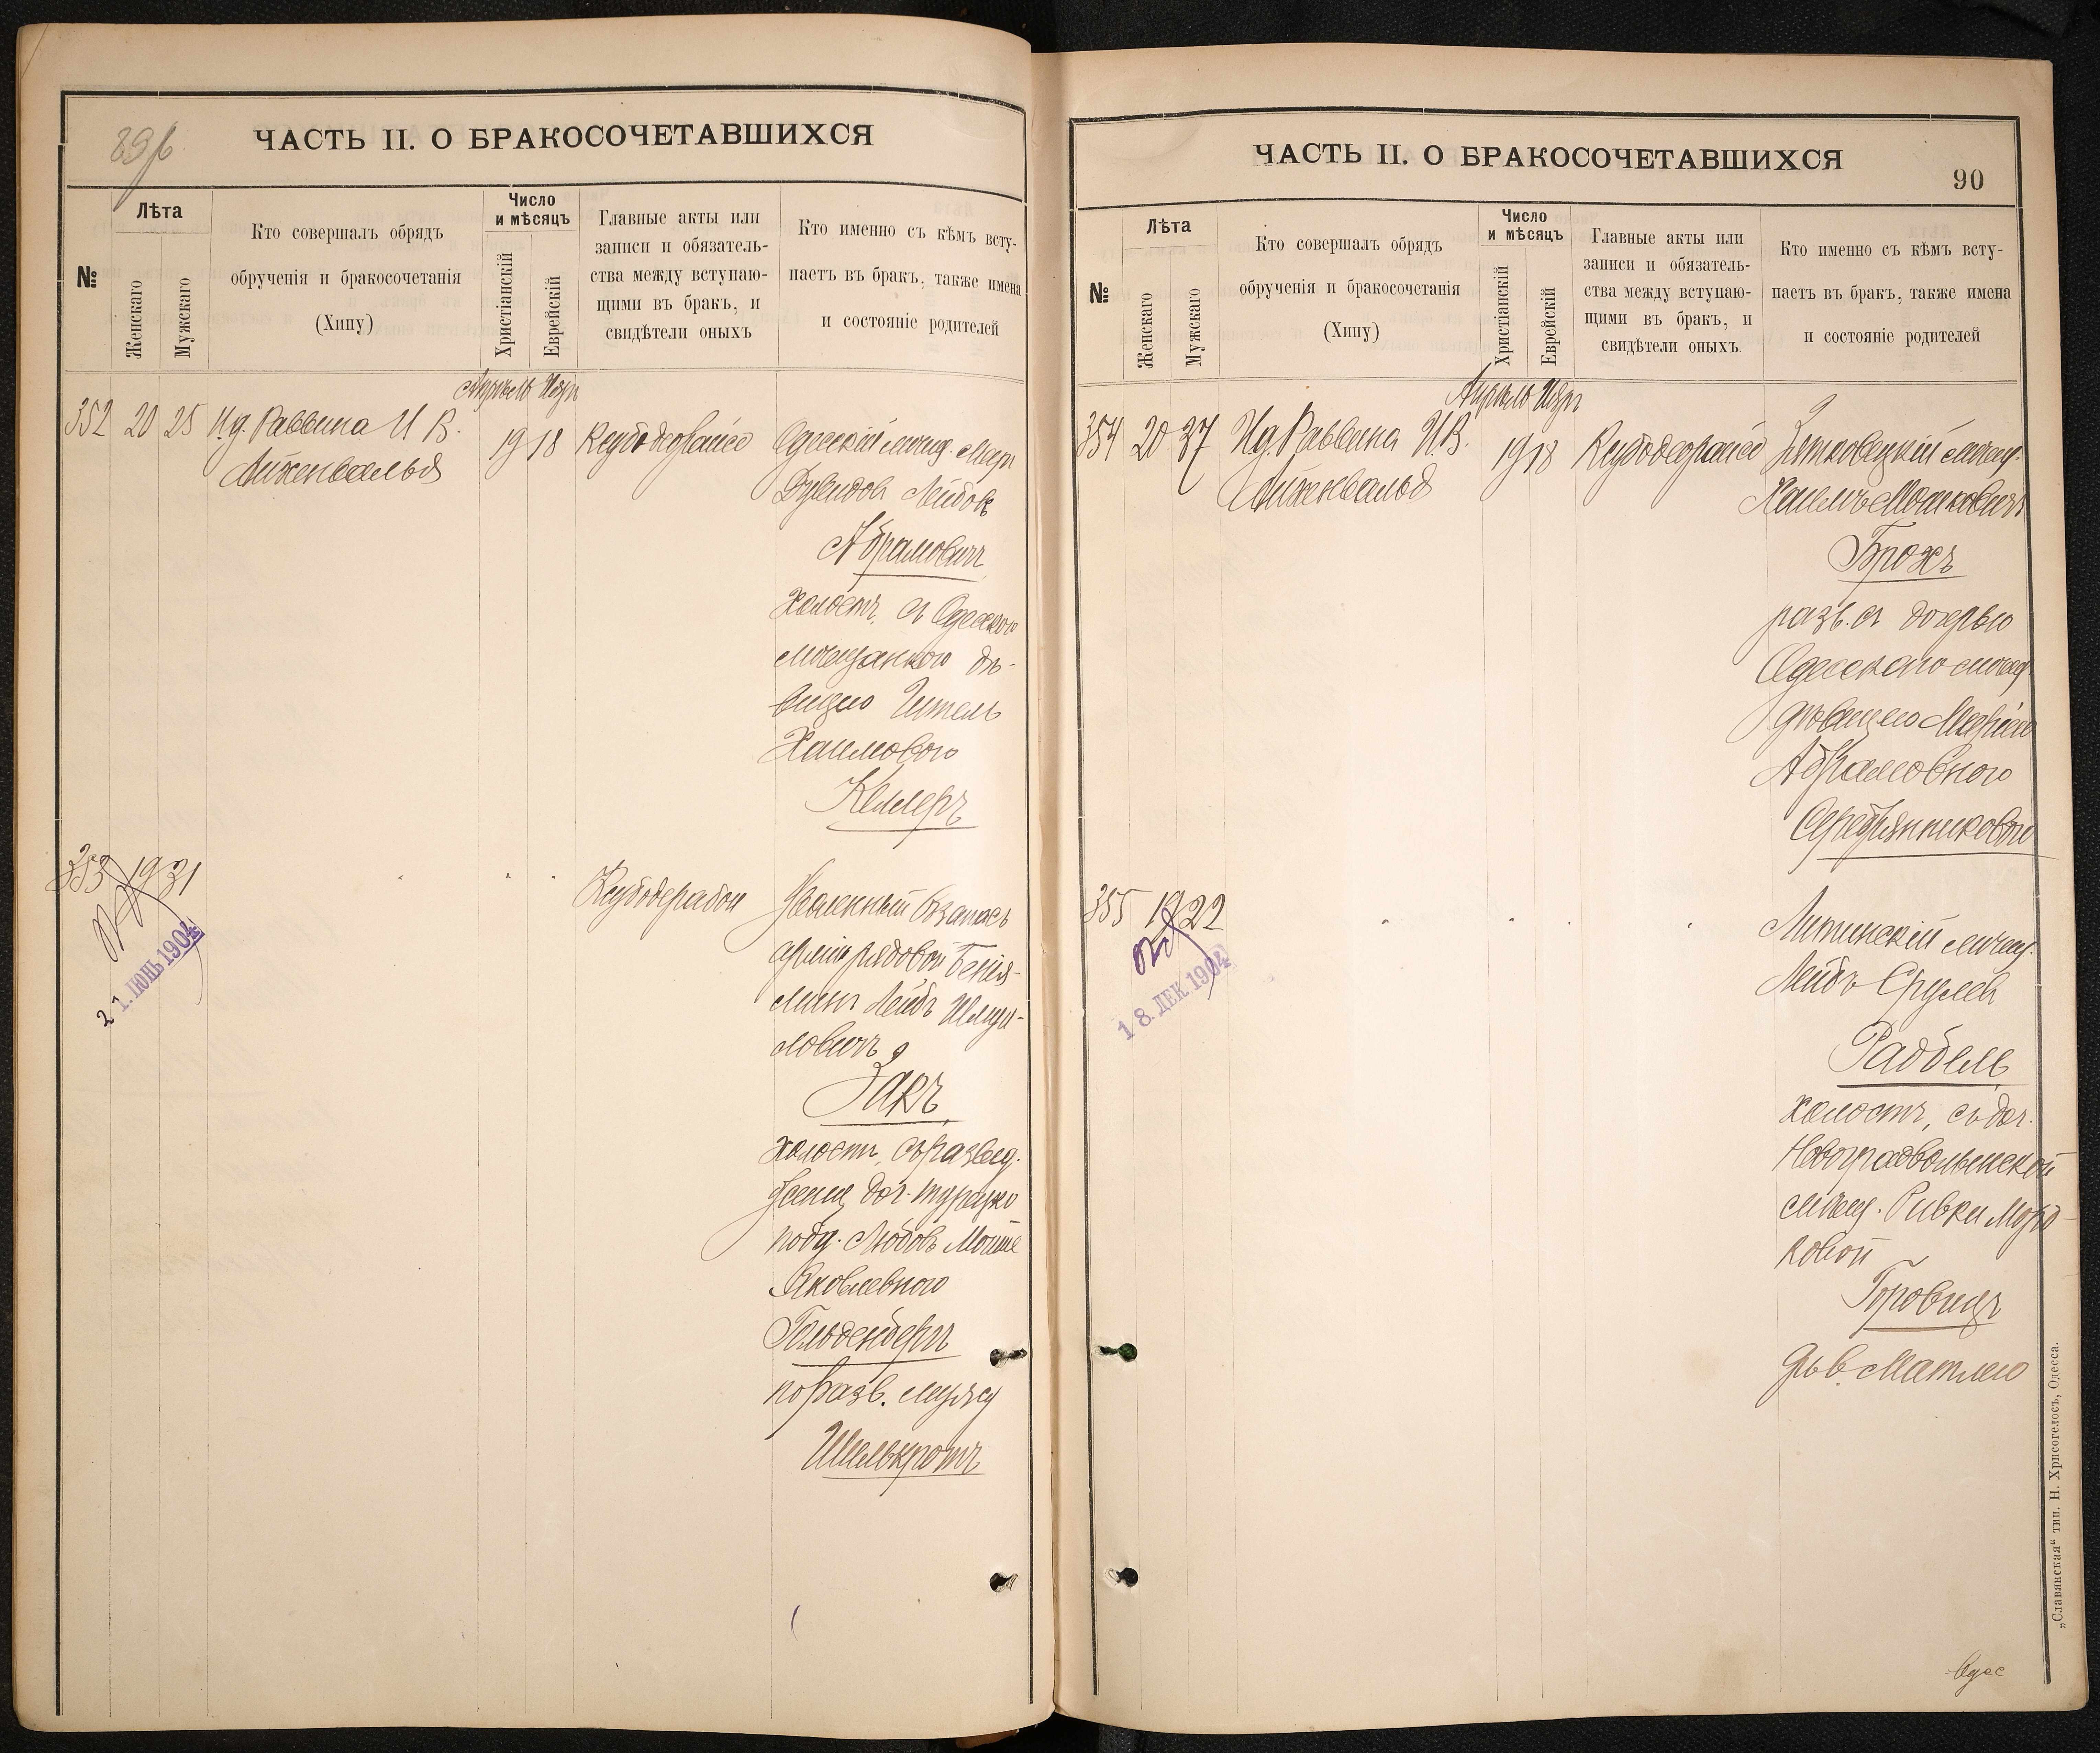 89 об
ЧАСТЬ II. О БРАКОСОЧЕТАВШИХСЯ
№
Лѣта
Женскаго
Мужскаго
Кто совершалъ обрядъ
обрученія и бракосочетанія
(Хипу)
Число
и мѣсяцъ
Христіанскій
Еврейскій
Главные акты или
записи и обязатель-
ства между вступаю-
щими въ бракъ, и
свидѣтели оныхъ
Кто именно съ кѣмъ всту-
паетъ въ бракъ, также имена
и состояніе родителей
Апрѣль Іяръ
352 20 25 И.д. Раввина И В.
Айженвальдъ
19 18
Одесскій мѣщ.
Лейбовъ
Абрамовичъ
холостъ, съ Одесскою
мѣщанкою дѣ-
вицею Этель
Хаимовою
Келлеръ
353 19 31
21. ІЮНЬ 1904
Уволенный въ запасъ
арміи рядовой Бенія-
минъ Лейбъ Шмуи-
ловичъ
Закъ
холостъ, съ развед.
женщ. доч. турецко
подд. Любовь
Яковлевною
Гольденбергъ
по разв. мужу
Шелькротъ
ЧАСТЬ II. О БРАКОСОЧЕТАВШИХСЯ
90
№
Лѣта
Женскаго
Мужскаго
Кто совершалъ обрядъ
обрученія и бракосочетанія
(Хипу)
Число
и мѣсяцъ
Христіанскій
Еврейскій
Главные акты или
записи и обязатель-
ства между вступаю-
щими въ бракъ, и
свидѣтели оныхъ
Кто именно съ кѣмъ всту-
паетъ въ бракъ, также имена
и состояніе родителей
Апрѣль Іяръ
354 20 37 И.д. Раввина И.В.
Айженвальдъ
19 18
мѣщ.
Хаимъ Мошковичъ
Брохъ
разв. съ дочерью
Одесскаго мѣщ.
дѣвицею Маріею
Абрамовною
Серебрянниковою
355 19 22
18. ДЕК. 1904
Литинскій мѣщ.
Лейбъ Срулевъ
Раббель
холостъ, съ доч.
Новоградволынской
мѣщ. Ривки Морд-
ковой
Горовицъ
дѣв. Матлею
„Славянская“ тип. Н. Хрисогелосъ, Одесса.